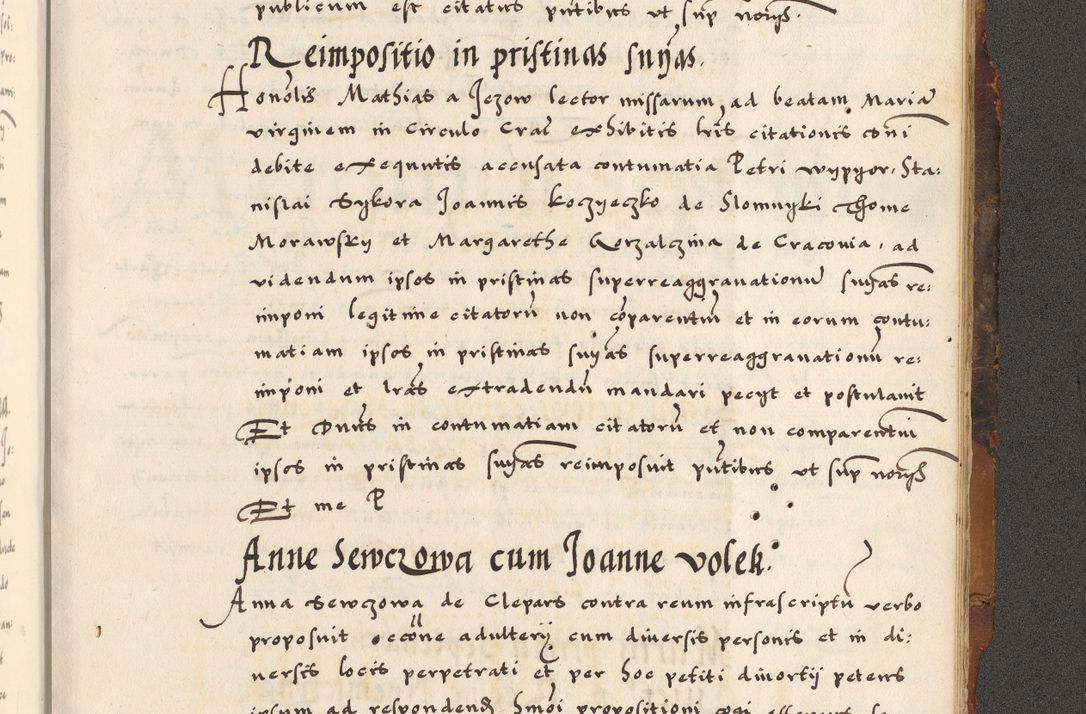 publicum est citatus pñtibus ut sup̃ norgs.
Reimpositio in pristinas suȳas.
Honolis Mathias a Jezow lector missarum ad beatam Mariã
virginem in Circulo Craĩ exhibitis lr̃is citationis coñi
debite exequutis accusata contumatia Petri wypyor, Sta:
nislai Sykora Joannis Koczyeczko de Slomnyki Thome
Morawsky et Margarethe Korzalczina de Cracovia, ad
videndum ipsos in pristinas superreaggravationũ suȳas re:
imponi legitime citatorũ non cõparentiũ et in eorum contu:
matiam ipsos in pristinas suȳas superreaggravationũ re:
imponi et lr̃as extradendũ mandari pecyt et postulavit
Et Dñus in contumatiam citatorũ et non comparentiũ
ipsos in pristinas suȳas reimposuit pñtibus ut sup̃ norgs
Et me P
Anne Sewczowa cum Joanne Volek.
Anna Sewczowa de Clepars contra reum infrascriptũ verbo
proposuit occõne adulterij cum diversis personis et in di:
versis locis perpetrati et per hoc petiti divortij petens
ipsum ad respondend hmõi propositioni